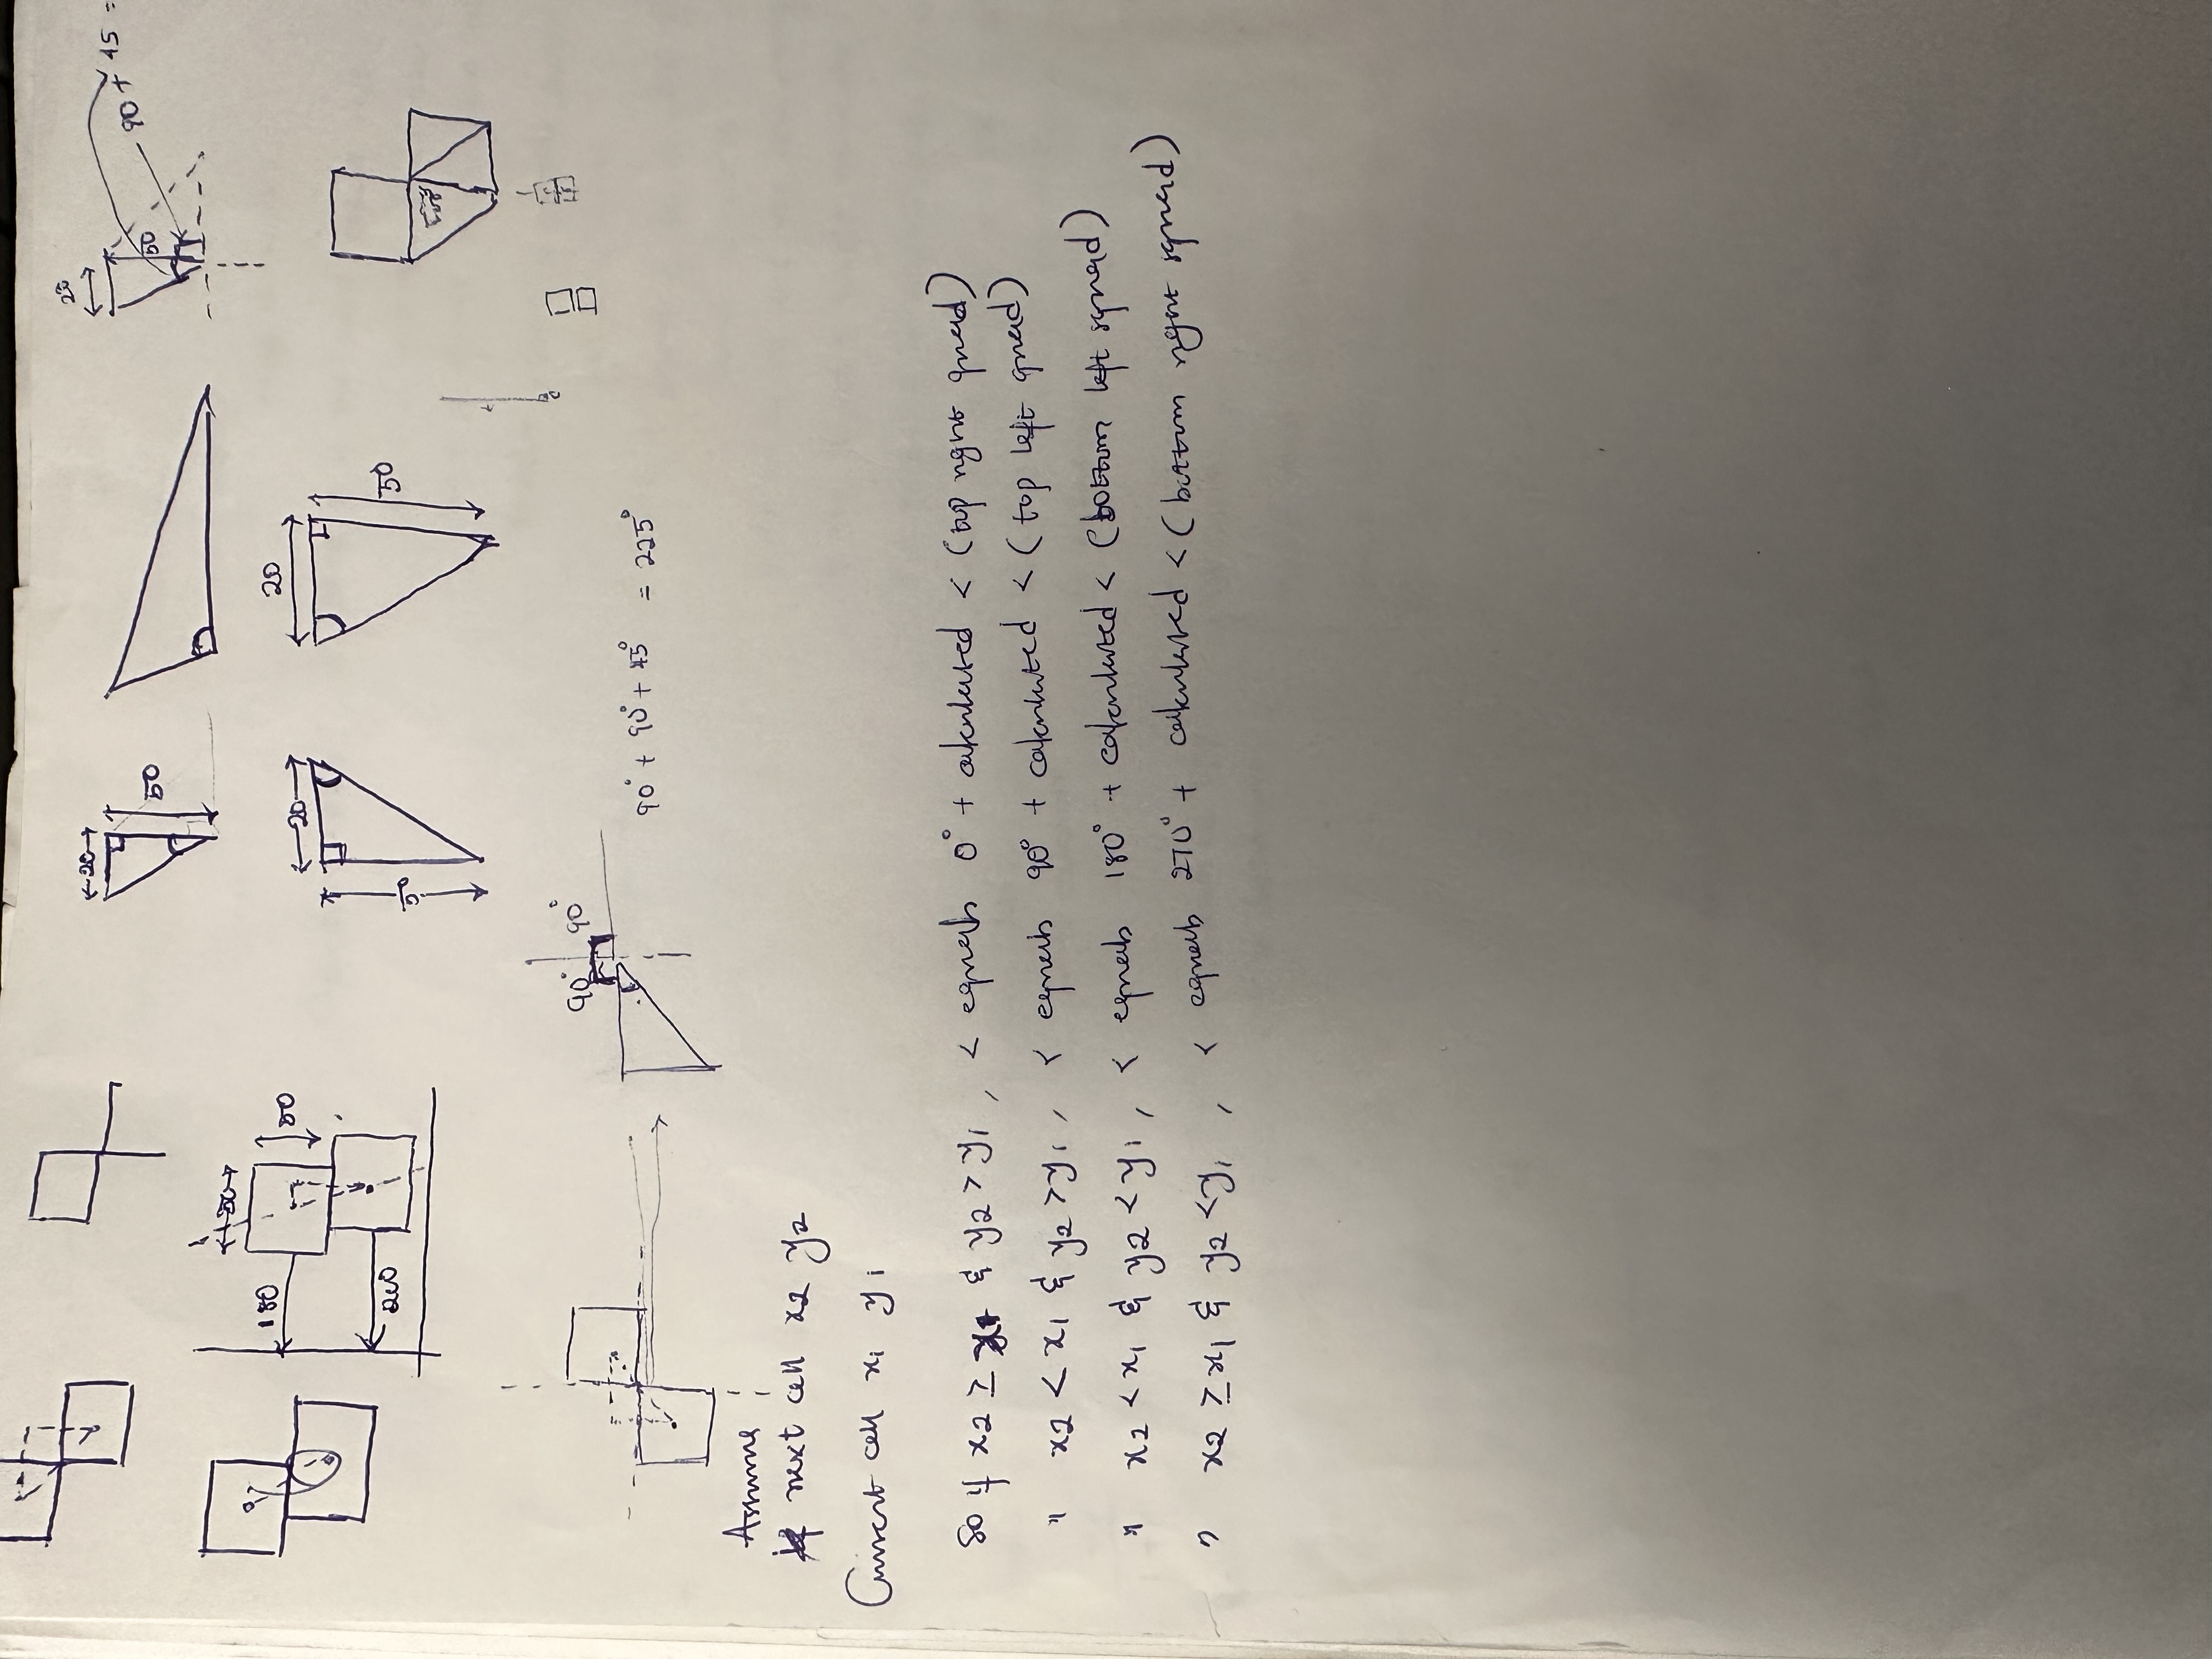 20
50
20
50
90 + 45 =
50
50
180
200
20
50
20
50
90° 90°
90° + 90° + 45° = 225°
Assume
if next cell x2 y2
Current cell x1 y1
So if x2 ≥ x1 & y2 > y1 , < equals 0° + calculated < (top right quad)
" x2 < x1 & y2 > y1 , < equals 90° + calculated < (top left quad)
" x2 < x1 & y2 < y1 , < equals 180° + calculated < (bottom left squad)
" x2 ≥ x1 & y2 < y1 , < equals 270° + calculated < (bottom right squad)